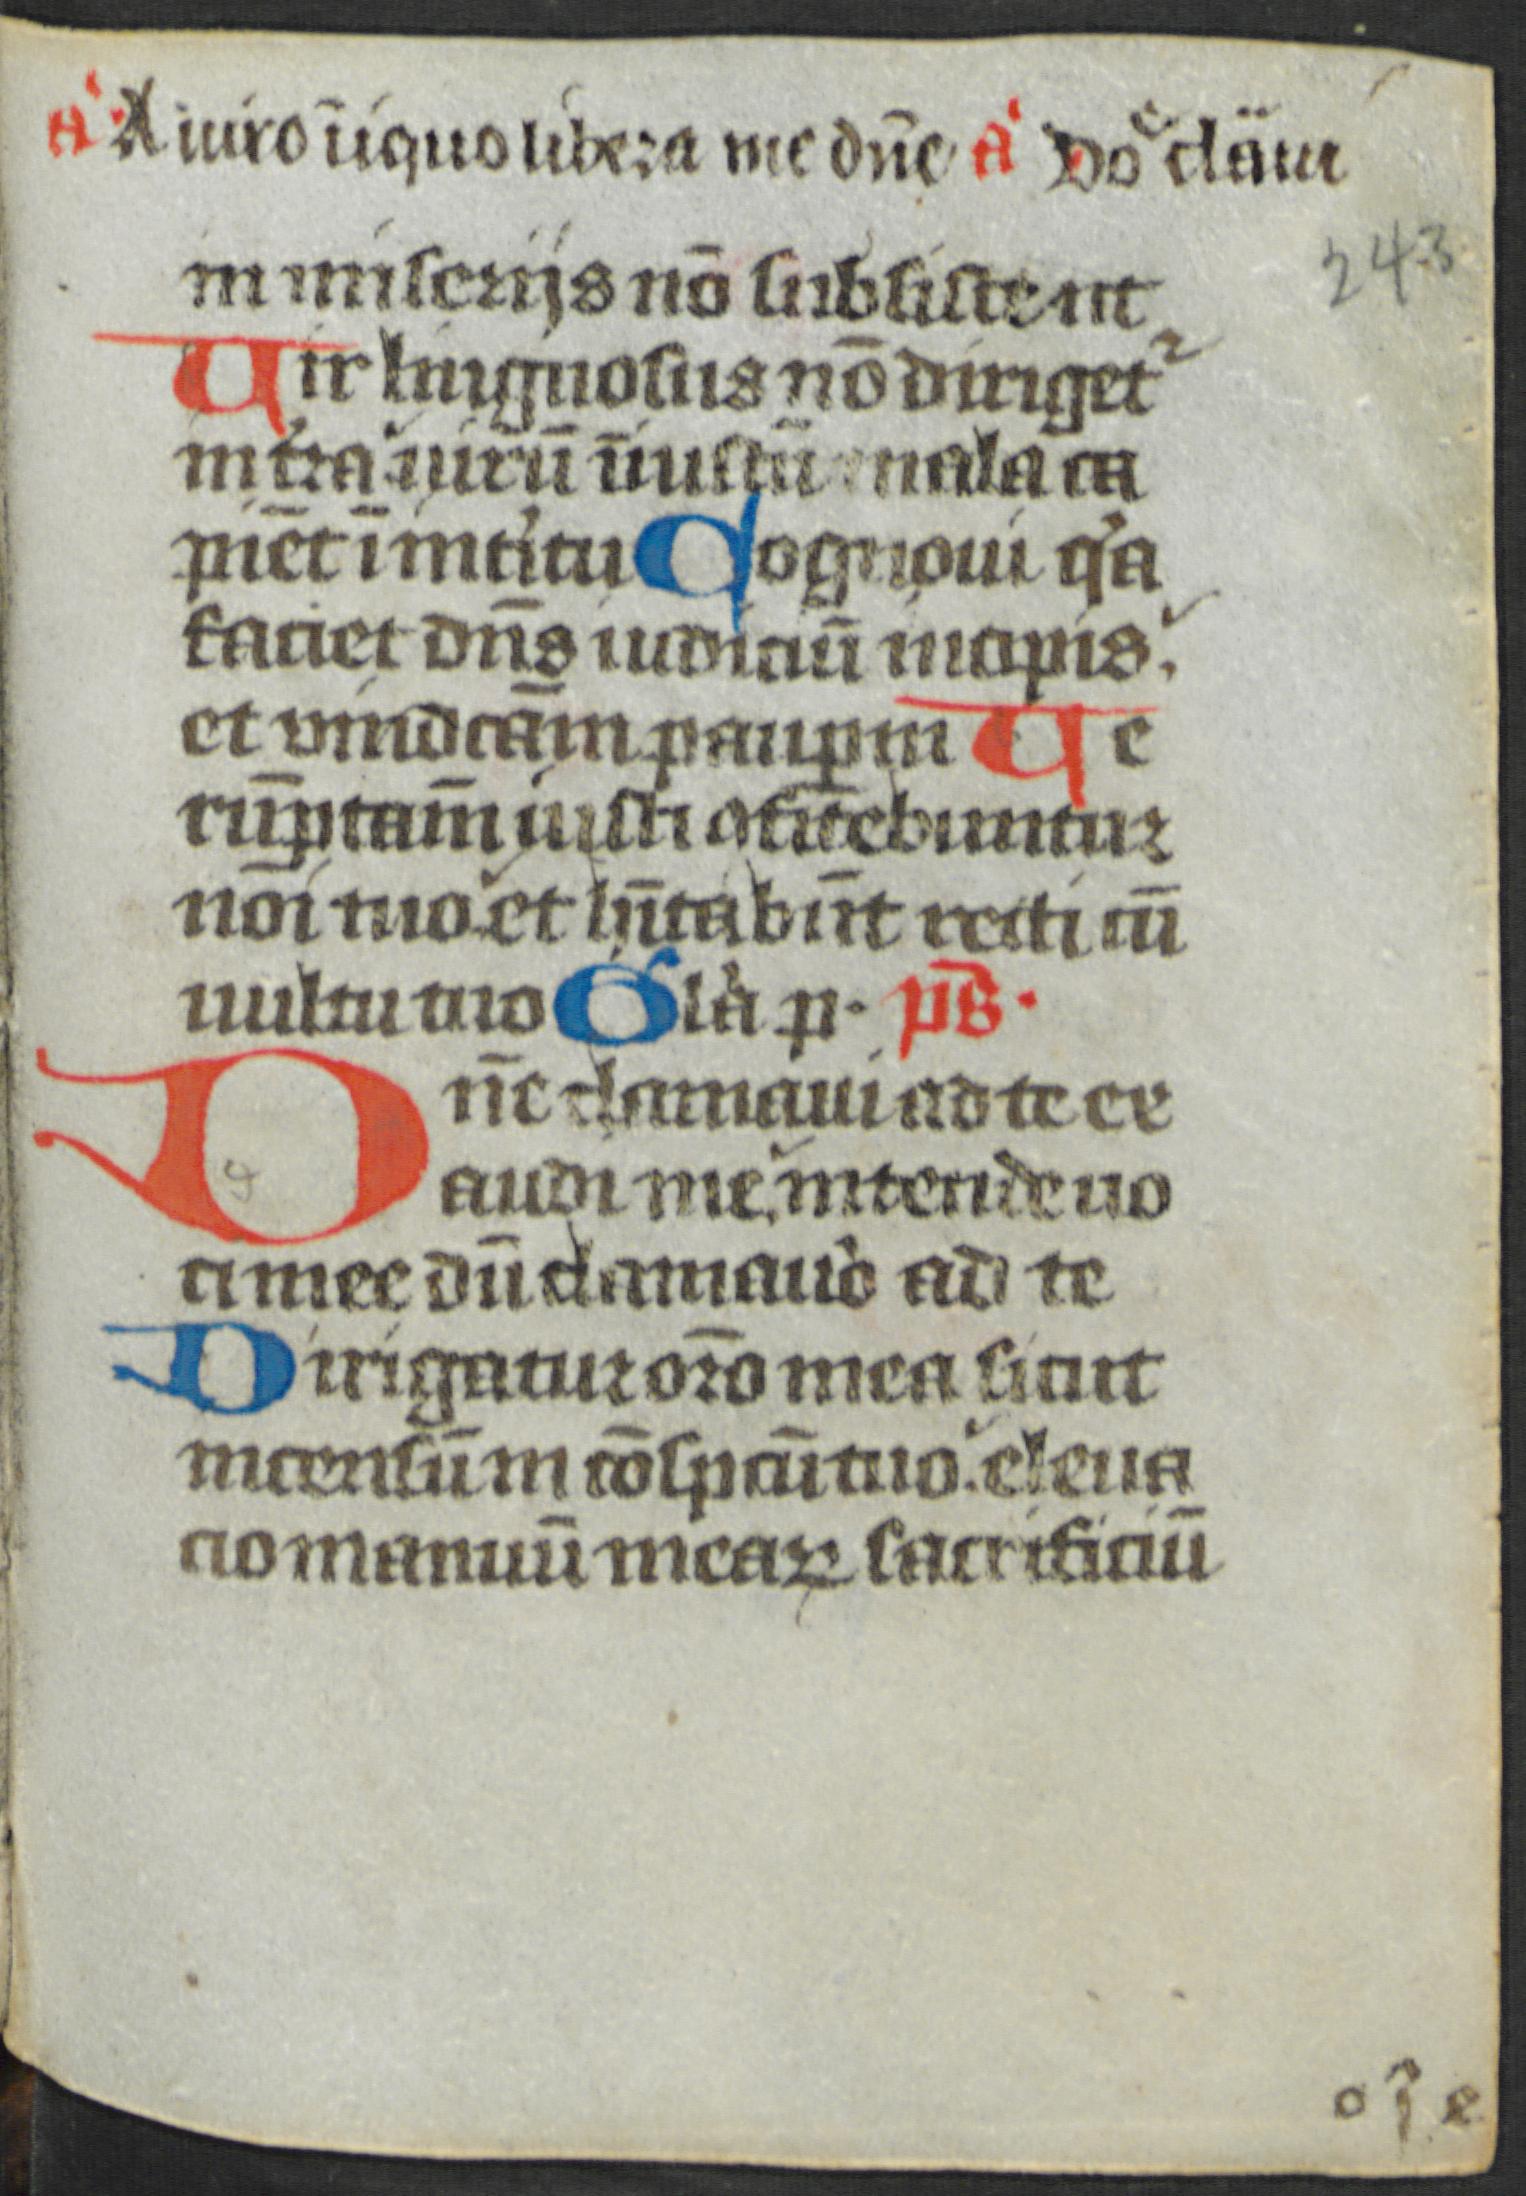 A' A uiro īiquo libera me dn̄e A' Do ͨ clāui
243
in miserijs nō subsistent
Vir linguosus nō diriget²
in t̄ra uirū īiustū mala ca
piēt ī int'itu Cognoui q'a
faciet dn̄s iudiciū inopis.
et vindcām paupm Ve
rūptam̄ iusti ꝯfitebuntur
nōi tuo et hītabūt recti cū
uultu tuo Gl'a p. ps̄.
Dn̄e clamaui ad te ex
audi me intende uo
ci mee dū clamau'o ad te
Dirigatur or̄o mea sicut
incensū in cōspcū tuo eleua
cio manuū mearꝝ sacrificiū